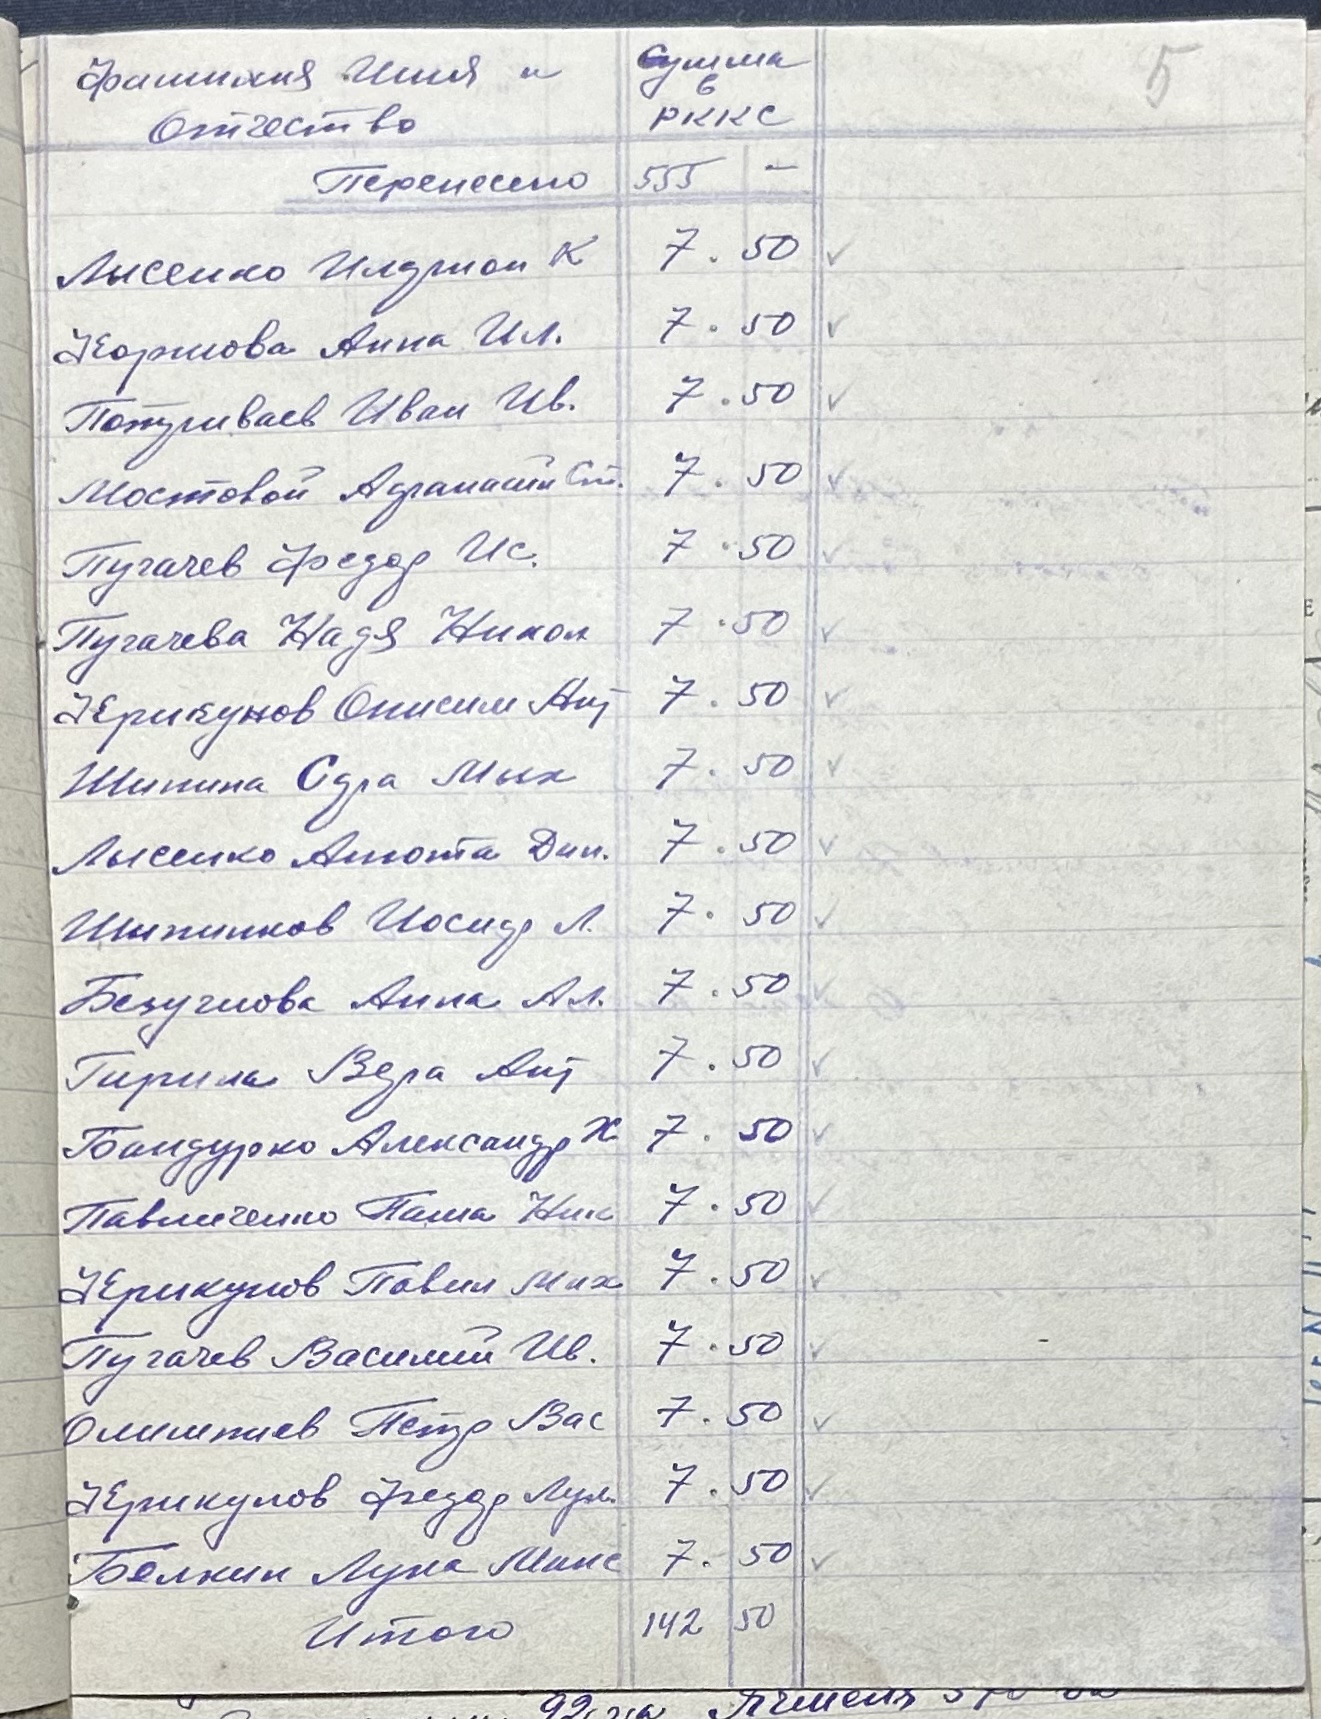 Фамилия Имя и Сумма 5
в
Отчество РККС
Перенесено 555 —
Лысенко Иларион К 7. 50 ✓
Жоржова Анна Ил. 7. 50 ✓
Иван Ив. 7. 50 ✓
Мостовой Афанасий Ст. 7. 50 ✓
Пугачев Федор Ис. 7. 50 ✓
Пугачева Надя Никол 7. 50 ✓
Жерикунов Онисим Ант 7. 50 ✓
Шипина Сара Мих 7. 50 ✓
Лысенко Анюта Дан. 7. 50 ✓
Иосиф Л. 7. 50 ✓
Анна Ал. 7. 50 ✓
Гирила Вера Ант 7. 50 ✓
Бандурко Александр Х 7. 50 ✓
Павличенко Паша Ник 7. 50 ✓
Жерикунов Павил Мих 7. 50 ✓
Пугачев Василий Ив. 7. 50 ✓
Олимпиев Петр Вас 7. 50 ✓
Жерикунов Федор Лук. 7. 50 ✓
Белкин Лука Макс 7. 50 ✓
Итого 142 50